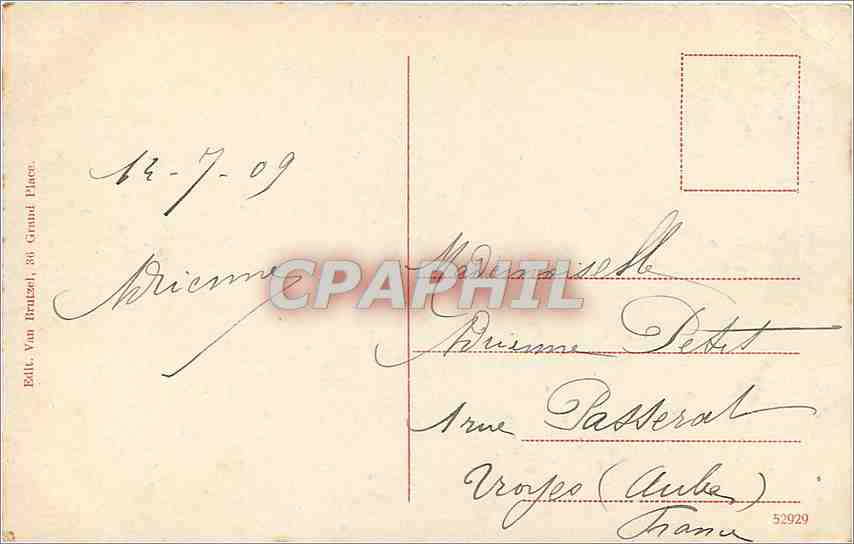 Edit. Van Brutzel, 36 Grand Place.
12-7-09
Adrienne
CPAPHIL
Mademoiselle
Adrienne Petit
1 rue Passerat
Troyes (Aube)
France
52929